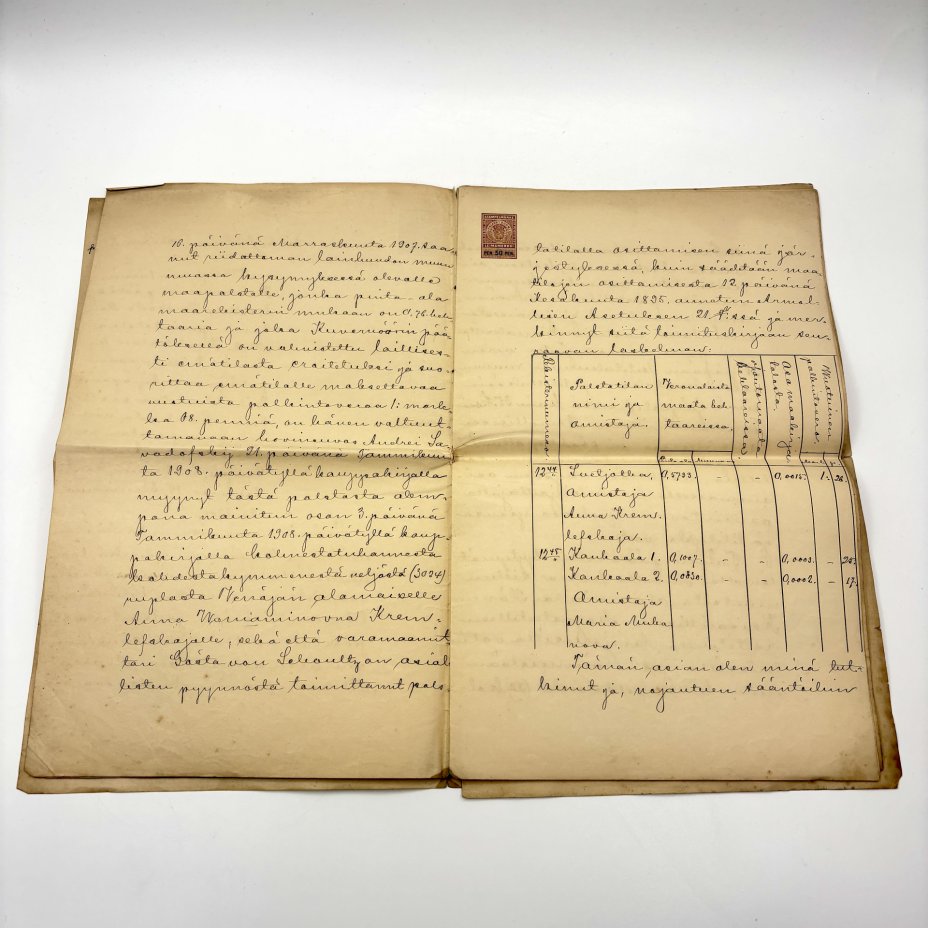 10. päivänä Marraskuuta 1907. saa-
nut riidattoman lainhuudon muun
muassa kysymyksessä olevalle
maapalstalle, jonka pinta-ala
maarekisterin mukaan on 0,76 heh-
taaria ja joka Kuvernöörin pää-
töksellä on valmistettu laillises-
ti emätilasta eroitetuksi ja suo-
rittaa emätilalle maksettavaa
vuotuista palkintoveroa 1: mark-
kaa 08. penniä, on hänen valtuut-
tamanaan hovineuvos Andrei Sa-
vadofskij 21. päivänä Tammikuu-
ta 1908. päivätyllä kauppakirjalla
myynyt tästä palstasta alem-
pana mainitun osan 3. päivänä
Tammikuuta 1908. päivätyllä kaup-
pakirjalla kolmestatuhannesta
kahdestakymmenestä neljästä (3024)
ruplasta Venäjän alamaiselle
Anna Weniaminovna Krem-
lefskajalle; sekä että varamaanmit-
tari Gösta von Schoultz, on asial-
listen pyynnöstä toimittanut pals-
STÄMPELMÄRKE
PEN. 50 PEN.
tatilalla osittamisen siinä jär-
jestyksessä, kuin säädetään maa-
tilojen osittamisesta 12 päivänä
Kesäkuuta 1895. annetun Armol-
lisen Asetuksen 21. §:ssä ja mer-
kinnyt siitä toimituskirjaan seu-
raavan laskelman:
Rekisterinumero.
Palstatilan
nimi ja
omistaja.
Veronalaista
maata heh-
taareissa.
Hehtaareissa
Osa maakirja
talosta.
Vuotuinen
palkintovero.
12 44. 0,5733. - - 0,0015. 1- 26.
Omistaja
Anna Krem-
lefskaja.
12 45 Kaukaala 1. 0,1007. - - 0,0003. - 25.
Kaukaala 2. 0,0830. - - 0,0002. - 17.
Omistaja
Maria Muha
nova.
Tämän asian olen minä tut-
kinut ja, nojautuen sääntöihin